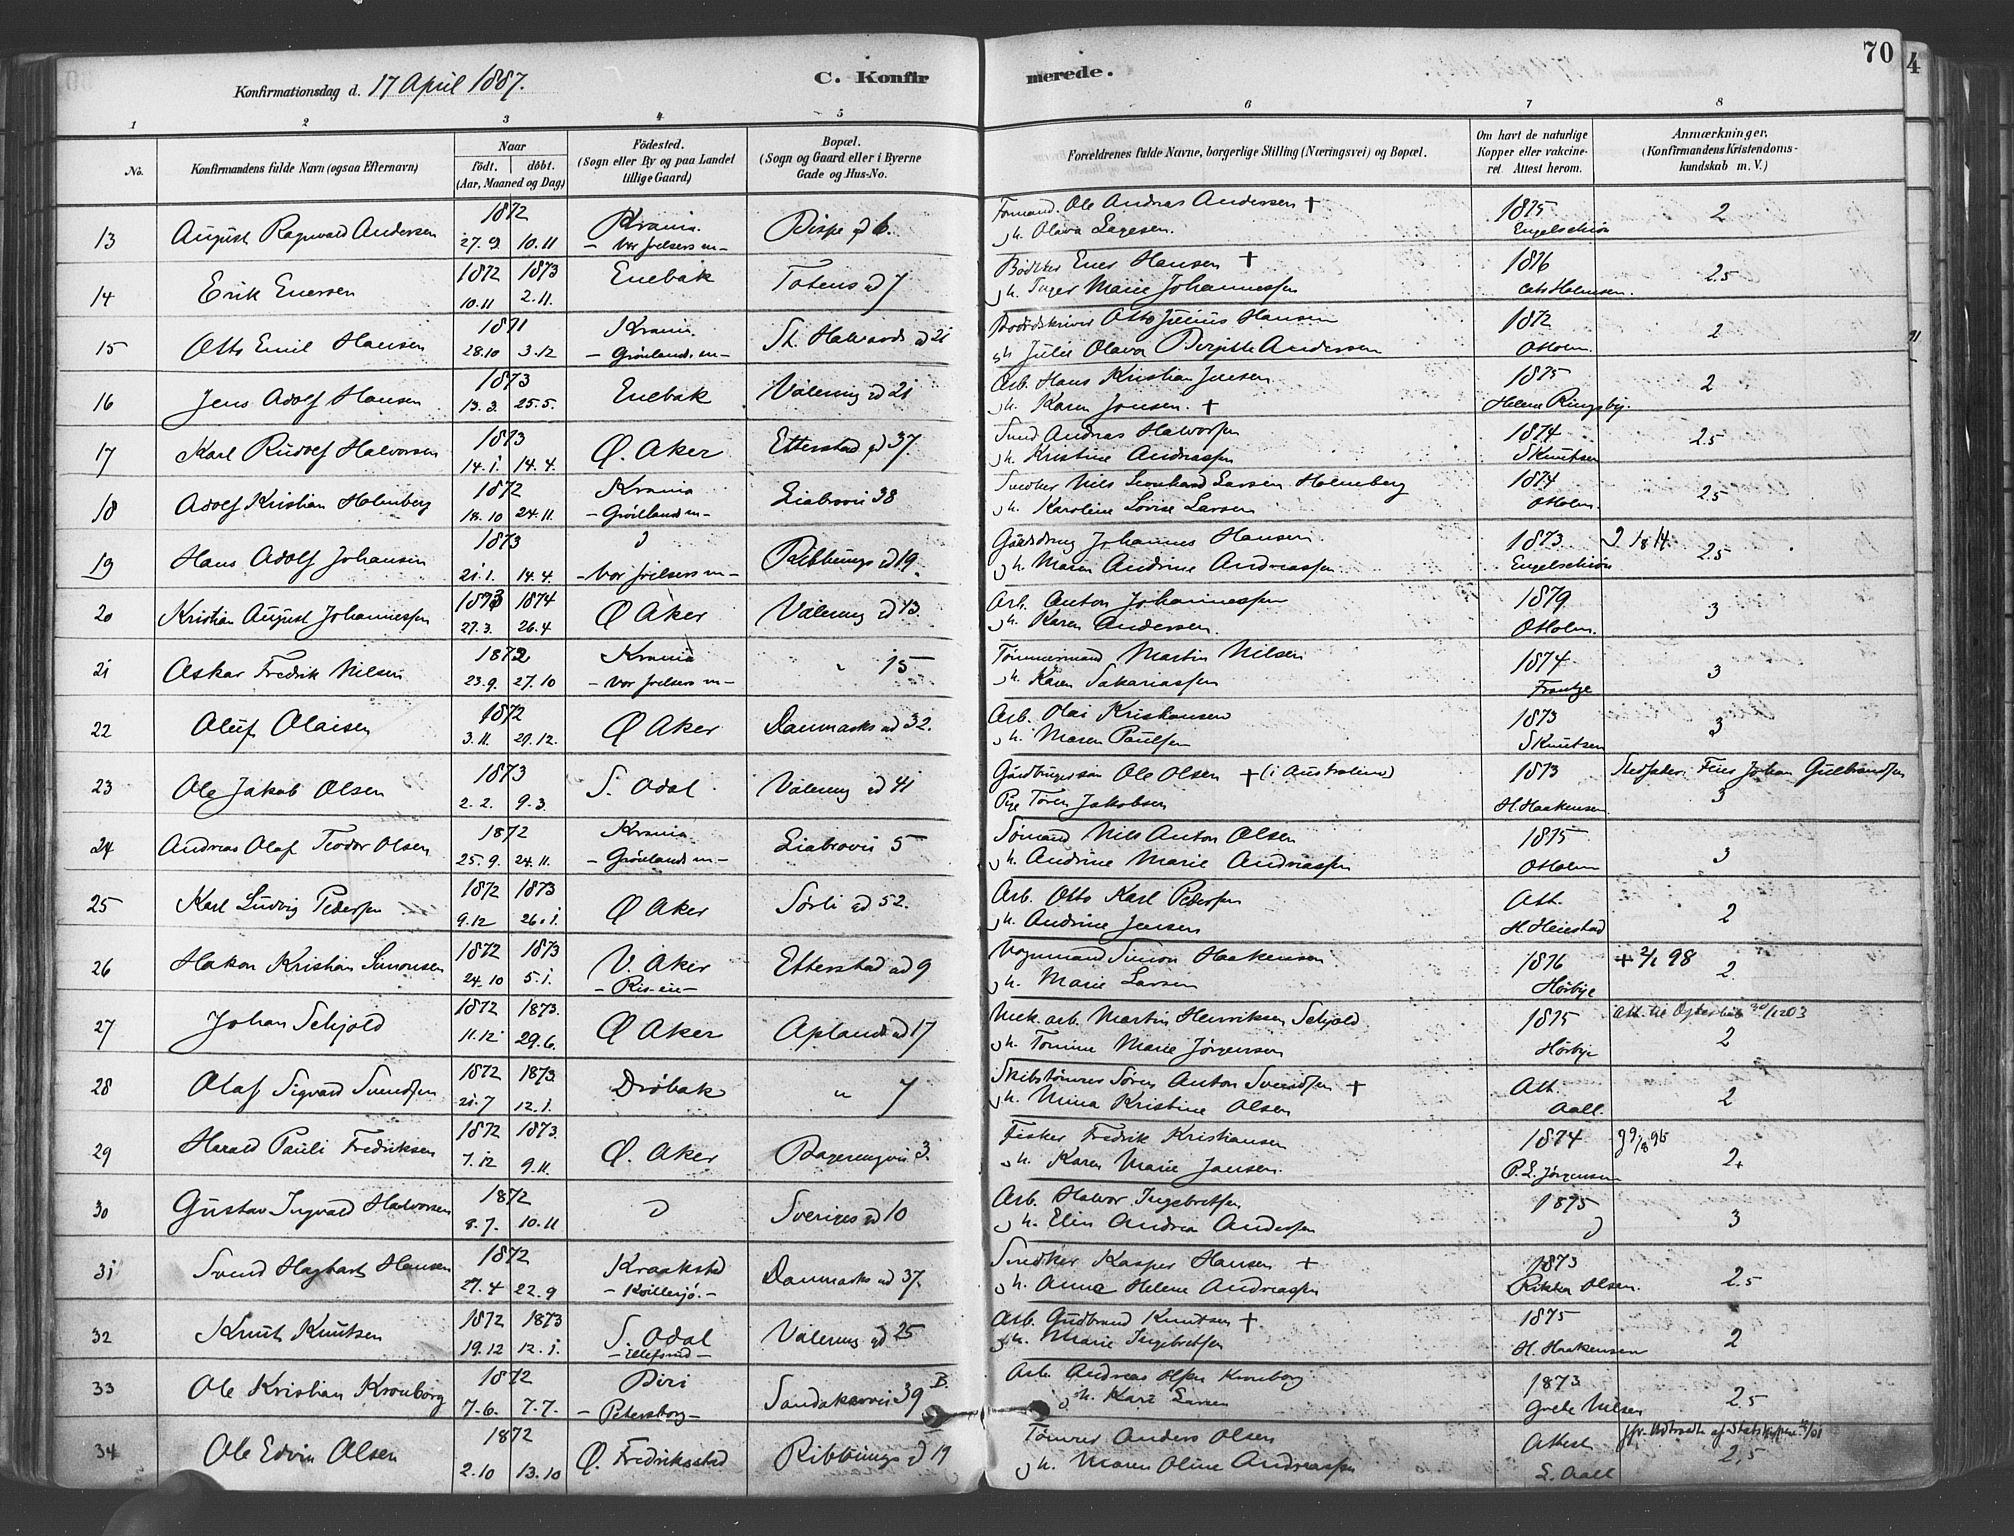 70
4
Konfirmationsdag d. 17 April 1887.
C. Konfirmerede.
1 2 3 4 5 6 7 8
No.
Konfirmandens fulde Navn (ogsaa Efternavn)
Naar
født. døbt.
(Aar, Maaned og Dag)
Fødested.
(Sogn eller By og paa Landet
tillige Gaard)
Bopæl.
(Sogn og Gaard eller i Byerne
Gade og Hus-No.
Forældrenes fulde Navne, borgerlige Stilling (Næringsvei) og Bopæl.
Om havt de naturlige
Kopper eller vakcine-
ret Attest herom.
Anmærkninger.
(Konfirmandens Kristendoms-
kundskab m. V.)
13 August Ragnvald Andersen 1872 27.9. 10.11 Krania. - Vor frelsers m - Ole Andreas Andersen + 1875 2
h. Olava
14 Erik Enersen 1872 1873 10.11 2.11. Enebak Totens gd 7 Bødker Ener Hansen + 1876 2.5
h. Inger Marie Johannessen
15 Otto Emil Hansen 1871 28.10 3.12 Krania - Grønlands m - St. Halvards gd 21 Otto Julius Hansen 1872 2
h. Julie Olava Birgitte Andersen O Holm
16 Jens Adolf Hansen 1873 13.3. 25.5. Enebak Vålereng gd 21 Arb. Hans Kristian Jensen 1875 2
h. Karen Jensen. + Helene Ringsby.
17 Karl Rudolf Halvorsen 1873 14.1. 14.4. Ø. Aker Etterstad gd 37. Andreas Halvorsen 1874 2.5
h. Kristine Andreassen S Knutsen
18 Adolf Kristian Holmberg 1872 18.10 24.11. Krania - Grønlands m - Liabrovei 38 Snedker Nils Leonhard Larsen Holmberg 1874 2.5
h. Karoline Lovise Larsen O Holm.
19 Hans Adolf Johansen 1873 21.1. 14.4. - Vor frelsers m - gd 19. Gårdbrug Johannes Hansen 1873 2.5
h. Maren Andrine Andreassen
20 Kristian August Johannessen 1873 1874 27.3. 26.4 Ø Aker Vålereng gd 43. Arb. Anton Johannessen 1879 3
h. Karen Andersen. O Holm.
21 Oskar Fredrik Nilsen 1872 23.9. 27.10 Krania - Vor frelsers m - " 15 Tømmermand Martin Nilsen 1874 3
h. Karen Sakariassen
22 Oluf Olaisen 1872 3.11. 29.12. Ø Aker Danmarks gd 32. Arb. Olai Kristiansen 1873 3
h. Maren Paulsen S Knutsen
23 Ole Jakob Olsen 1873 2.2. 9.3. S. Odal. Vålereng gd 41 Gårdbrugerssøn Ole Olsen + (i Australien) 1873 Johan Gulbrandsen
Pige Toren Jakobsen H. Haakensen 3
24 Andreas Olaf Teodor Olsen 1872 25.9. 24.11. Krania - Grønlands m - Liabrovei 5 Sømand Nils Anton Olsen 1875
h. Andrine Marie Andreassen O Holm 3
25 Karl Ludvig Pedersen 1872 1873 9.12 26.1. Ø Aker Sørli gd 52. Arb. Otto Karl Pedersen Att. 2
h. Andrine Jensen
26 Hakon Kristian Simonsen 1872 1873 24.10 5.1. V. Aker Etterstad gd 9 Vognmand Simon Haakensen 1876 + 2/1 98 2.
h. Marie Larsen Hørbye
27 Johan Schjold 1872 1873. 11.12 29.6. Ø Aker Oplands gd 17 Mek. arb. Martin Henriksen Schjold 1875 2
h. Tomine Marie Jørgensen Hørbye
28 Olaf Sigvard Svendsen 1872 1873. 21.7 12.1. Drøbak " 7 Skibstømrer Søren Anton Svendsen + Att. 2
h. Mina Kristine Olsen Aall.
29 Harald Pauli Fredriksen 1872 1873. 7.12 9.11. Ø. Aker 3. Fisker Fredrik Kristiansen 1874
h. Karen Marie Jansen. P. L. Jørgensen
30 Gustav Ingvald Halvorsen 1872 8.7. 10.11 Sveriges gd 10 Arb. Halvor Ingebretsen 1875 3
h. Elin Andrea Andersen
31 Svend Hagbart Hansen 1872 27.4 22.9 Kraakstad Danmarks gd 37. Snedker Kasper Hansen + 1873 2.5
h. Anna Helene Andreassen Rikka Olsen.
32 Knut Knutsen 1872 1873 19.12 12.1. S. Odal Vålereng gd 25 Arb. Gudbrand Knutsen + 1875 2
h. Marie Ingebretsen H. Haakensen
33 Ole Kristian Kronborg 1872 7.6. 7.7. Biri - Petersborg - Sandakervei 39 B. Arb. Andreas Olsen Kronborg 1873 2.5
h. Kari Larsen Grethe Nilsen
34 Ole Edvin Olsen 1872 2.10 13.10 Ø. Fredriksstad gd 19 Tømrer Anders Olsen Attest 2,5
h. Maren Oline Andreassen L. Aall